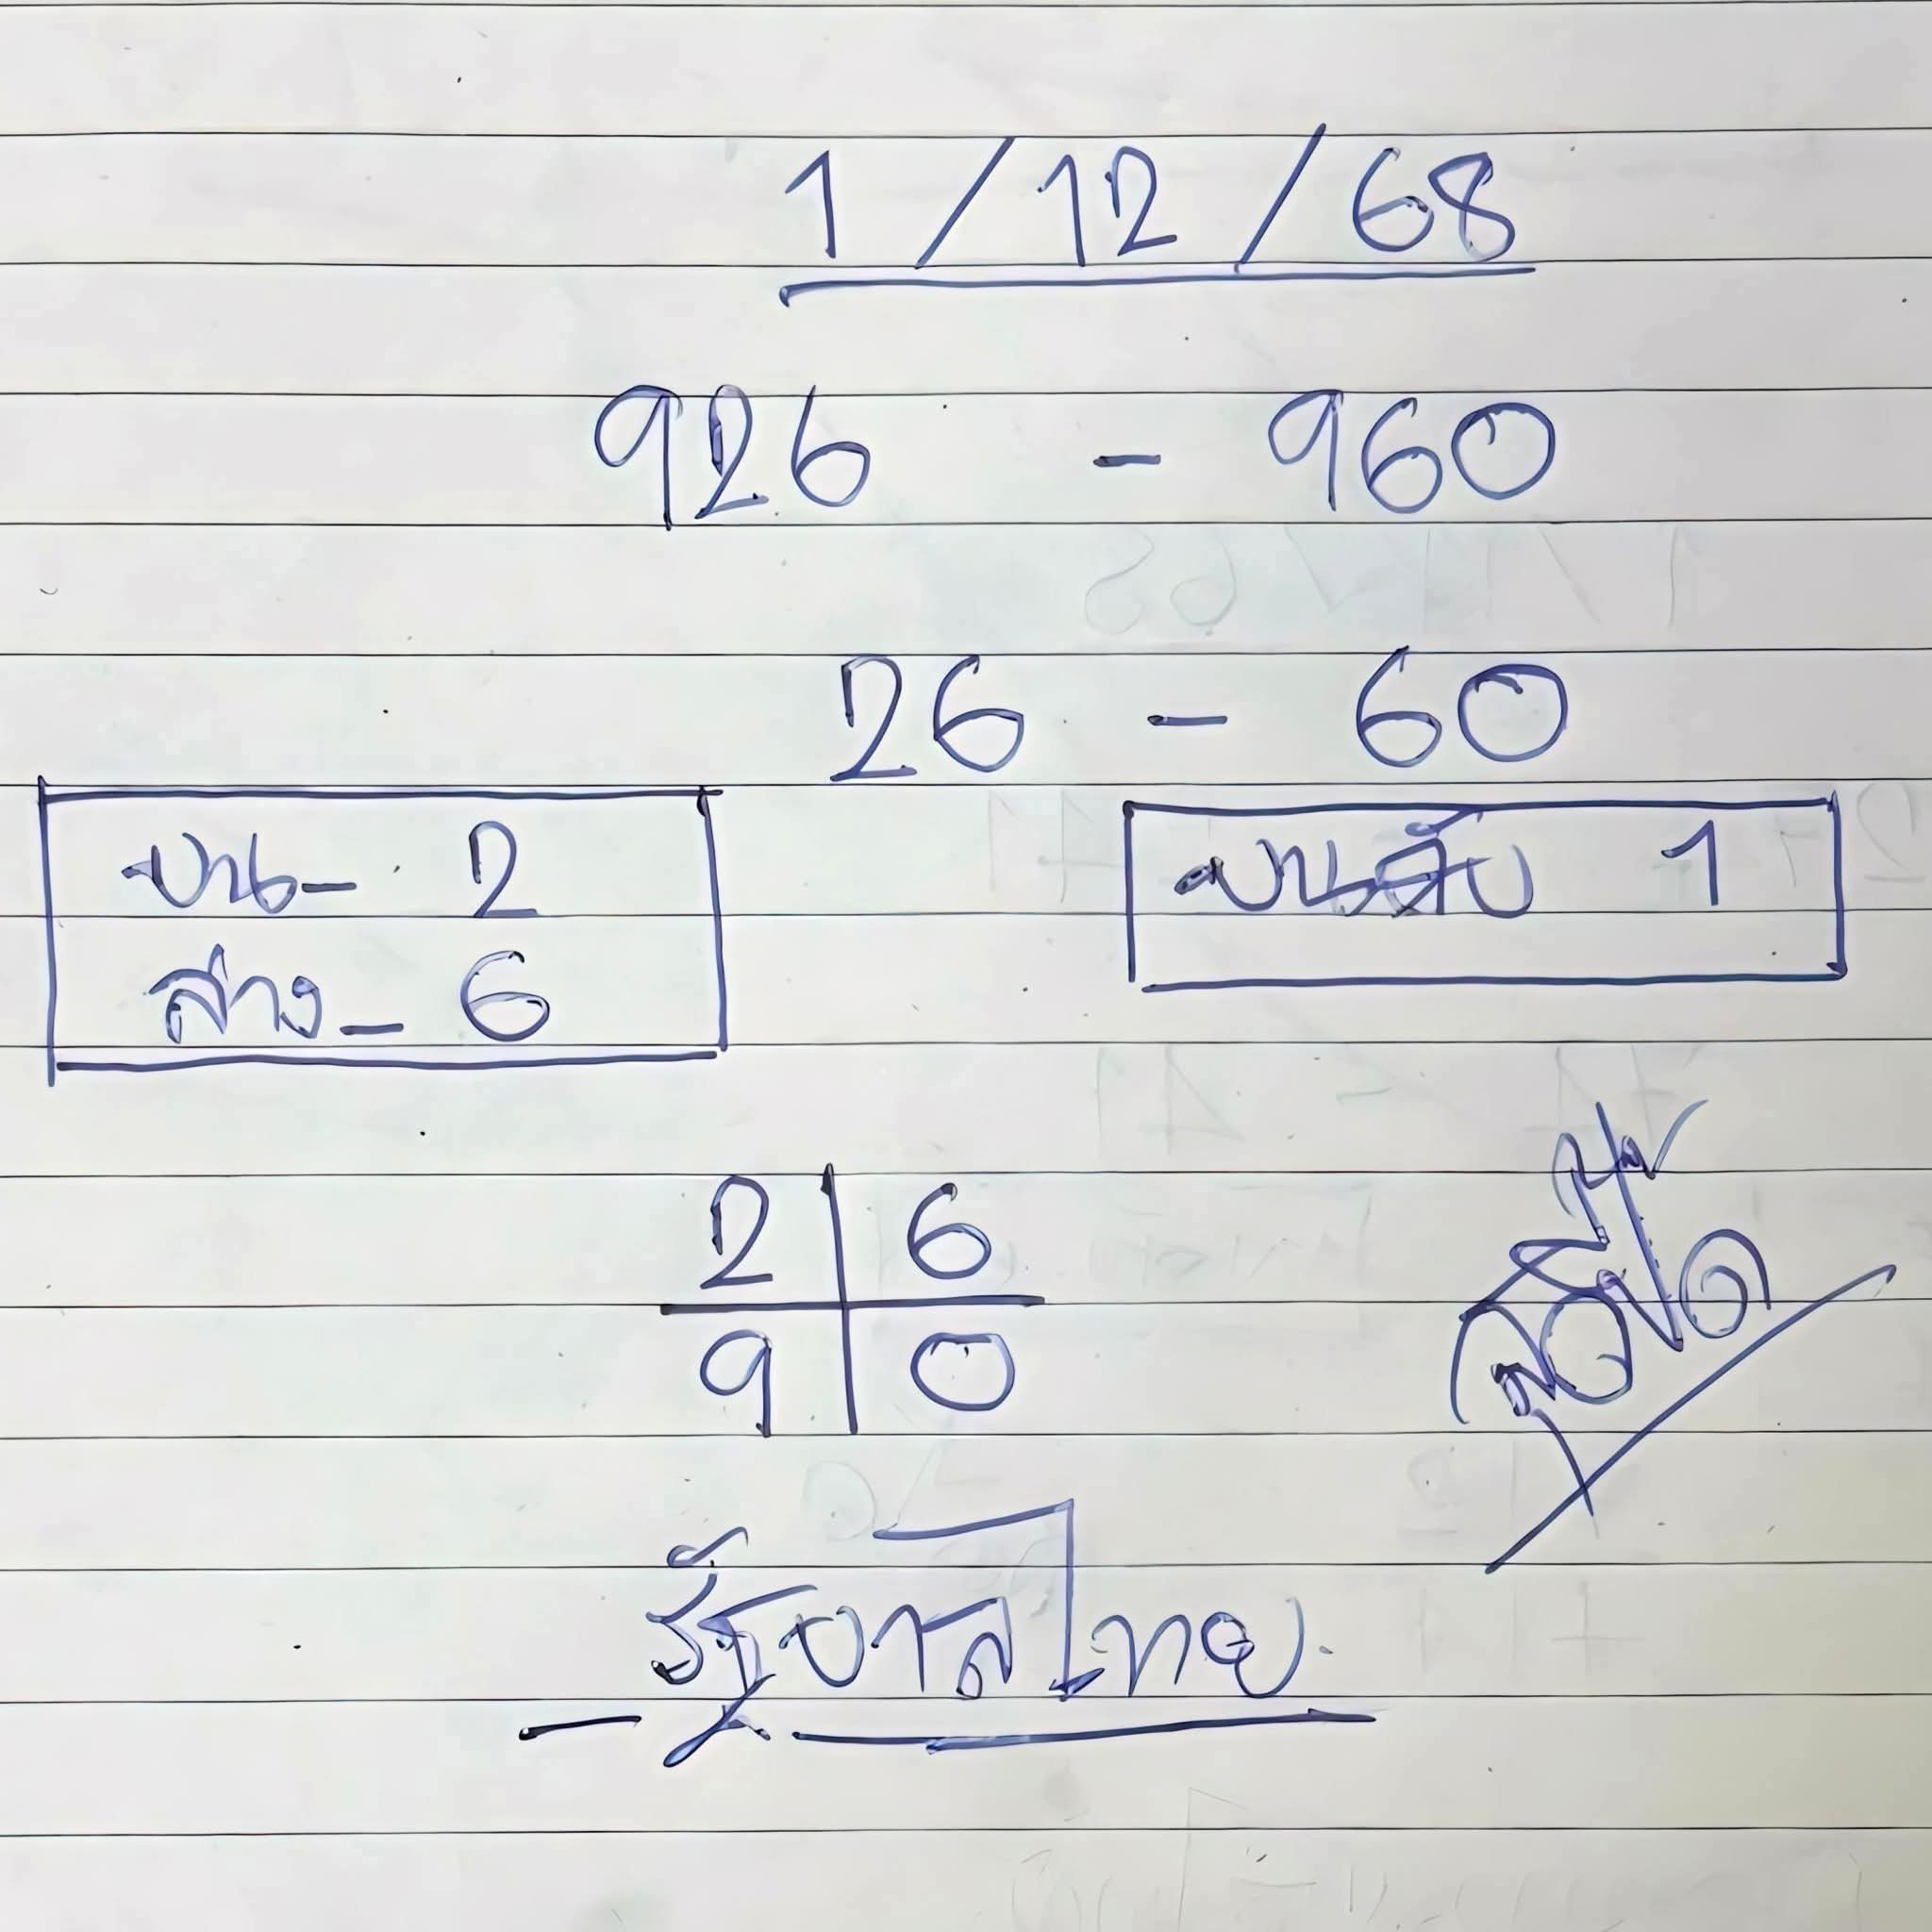 1/12/68
926 - 960
26 - 60
บน - 2
ล่าง - 6
บนดับ 1
2 6
9 0
รัฐบาลไทย